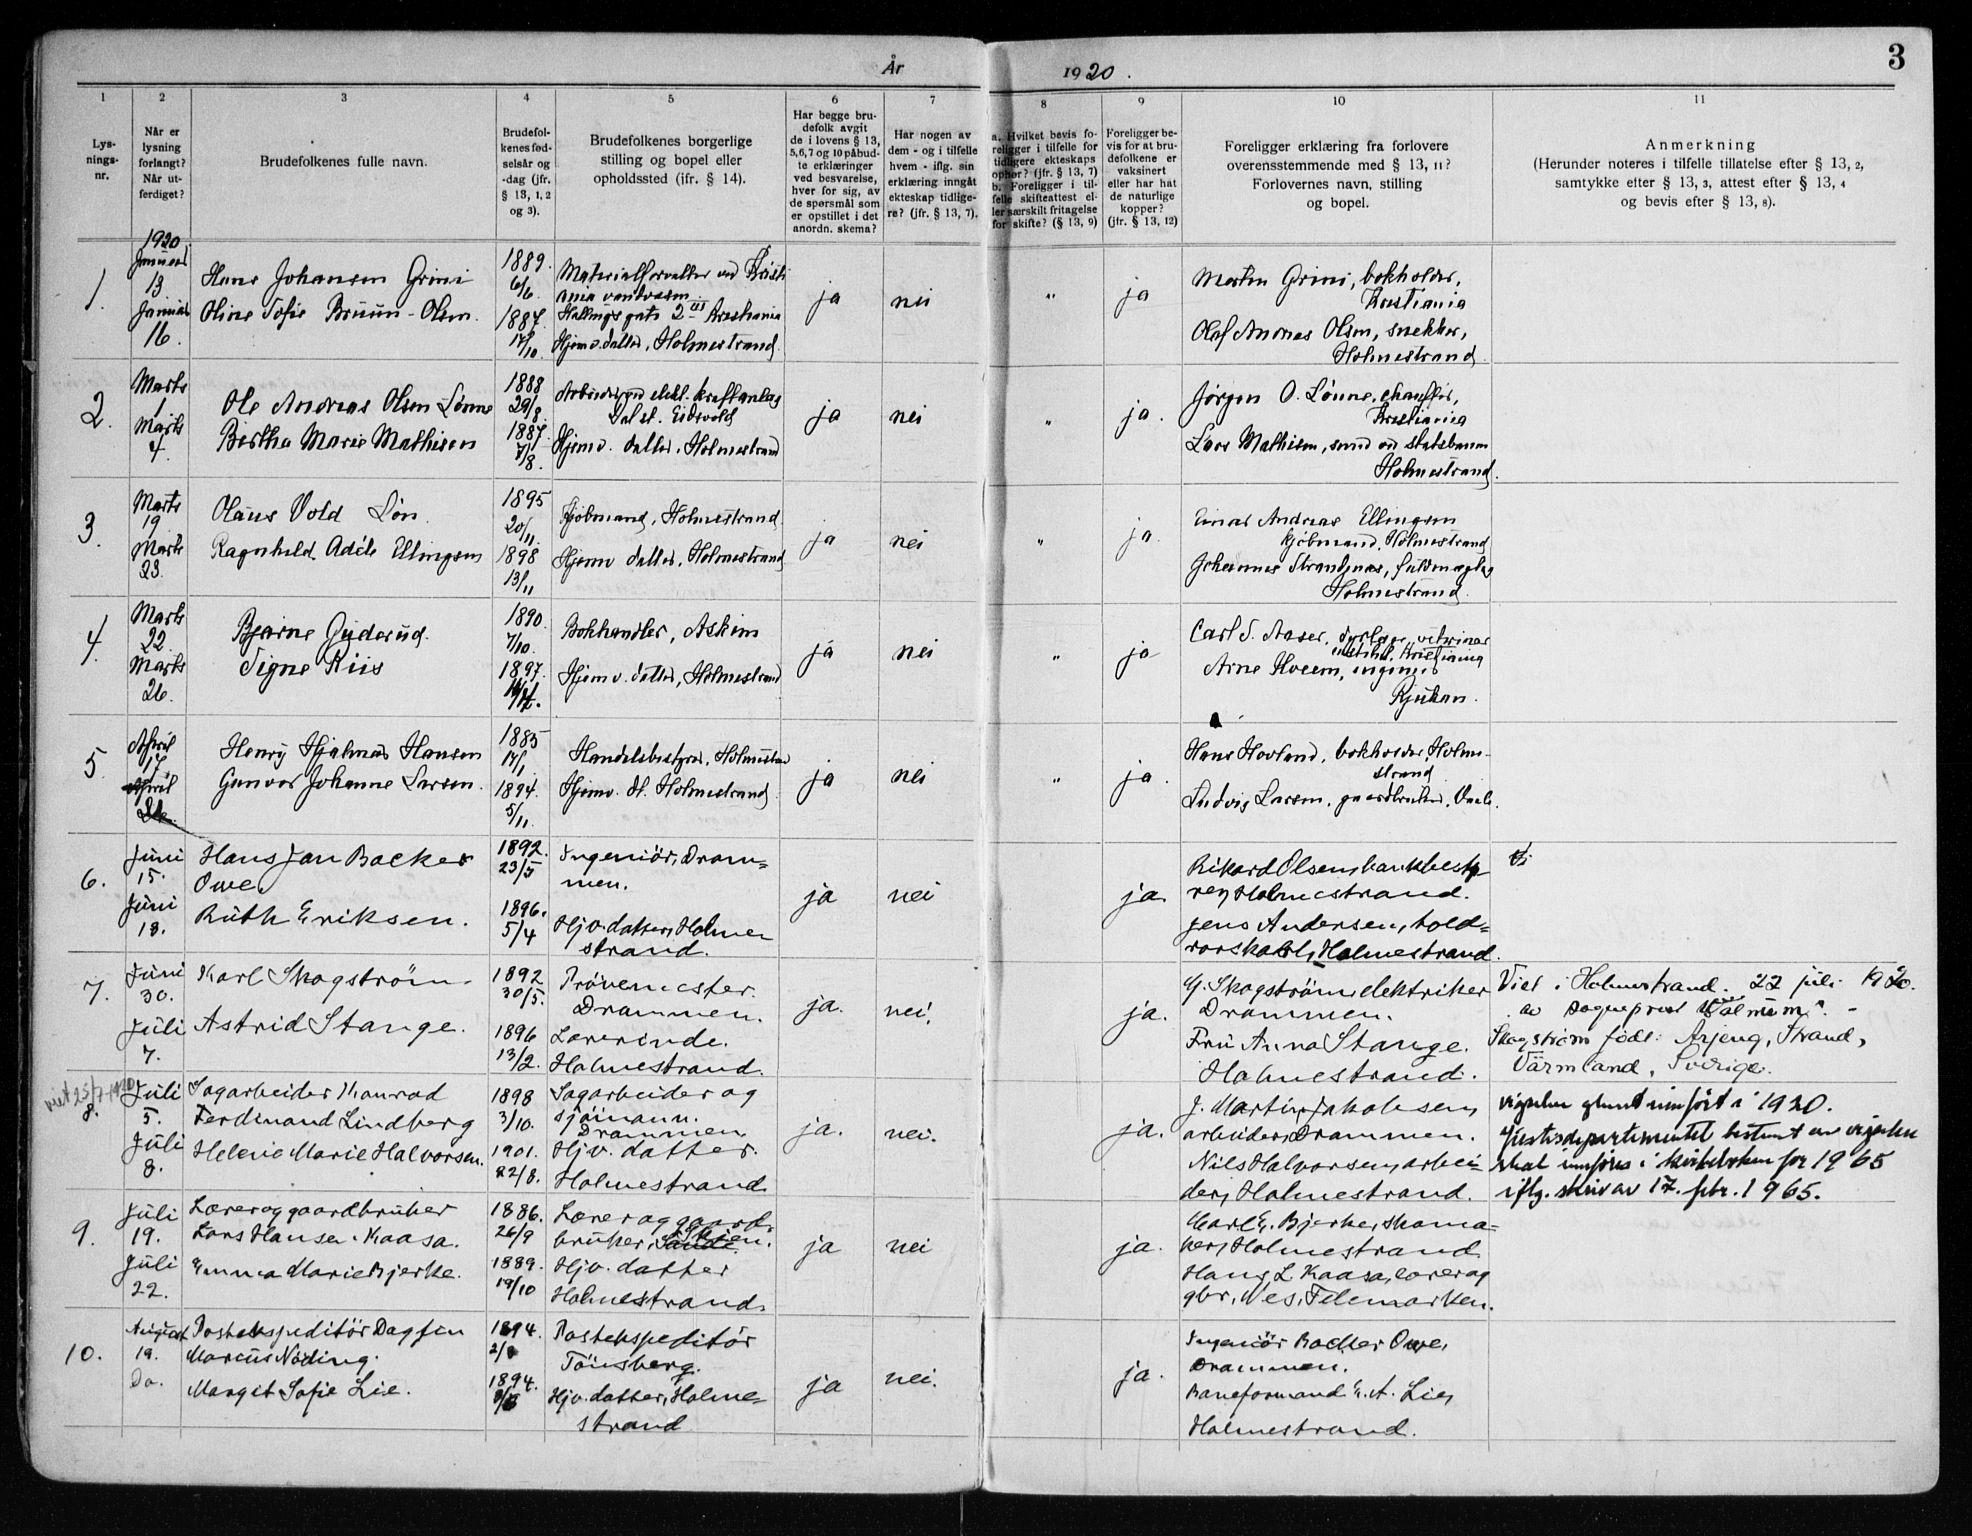 År
1920.
3
1
2
3
4
5
6
7
8
9
10
11
Lys-
nings-
nr.
Når er
lysning
forlangt?
Når ut-
ferdiget?
Brudefolkenes fulle navn.
Brudefol-
kenes fød-
selsår og
-dag (jfr.
§ 13, 1, 2
og 3).
Brudefolkenes borgerlige
stilling og bopel eller
opholdssted (jfr. § 14).
Har begge bru-
defolk avgit
de i lovens § 13,
5,6,7 og 10 påbud-
te erklæringer
ved besvarelse,
hver for sig, av
de spørsmål som
er opstillet i det
anordn. skema?
Har nogen av
dem - og i tilfelle
hvem - iflg. sin
erklæring inngåt
ekteskap tidlige-
re? (jfr. § 13, 7).
a. Hvilket bevis fo-
religger i tilfelle for
tidligere ekteskaps
ophør? (jfr. § 13, 7)
b. Foreligger i til-
felle skifteattest el-
ler særskilt fritagelse
for skifte? (§ 13, 9)
Foreligger be-
vis for at bru-
defolkene er
vaksinert
eller har hat
de naturlige
kopper?
(jfr. § 13, 12)
Foreligger erklæring fra forlovere
overensstemmende med § 13, 11?
Forlovernes navn, stilling
og bopel.
Anmerkning
(Herunder noteres i tilfelle tillatelse efter § 13, 2,
samtykke efter § 13, 3, attest efter § 13, 4
og bevis efter § 13, 8).
1.
1920
Januar
13
Januar
16.
Hans Johansen Grini
Oline Sofie Bruun-Olsen.
1889.
6/6.
1884.
17/10.
Materialforvalter ved Kristi
ania vandvæsen
Hallings gate 2 III Kristiania
Hjemv. datter, Holmestrand.
ja
nei
"
ja
Martin Grini, bokholder,
Kristiania
Olaf Andreas Olsen, snekker,
Holmestrand
2.
Marts
1
Marts
4.
Ole Andreas Olsen Lønne
Bertha Marie Mathisen
1888
29/8.
1887
7/8.
Arbeider ved elekt. kraftanlæg
Dal st. Eidsvold
Hjemv. datter, Holmestrand
ja
nei
"
ja.
Jørgen O. Lønne, chauffør,
Kristiania
Lars Mathisen, smed ved statsbanen
Holmestrand.
3.
Marts
19
Marts
23.
Olaus Vold Løn.
Ragnhild Adele Ellingsen
1895
20/11.
1898
13/11
Kjøbmand, Holmestrand.
Hjemv datter, Holmestrand
ja
nei
"
ja.
Einar Andreas Ellingsen
kjøbmand, Holmestrand
Johannes Strandenæs, fuldmægtig
Holmestrand.
4.
Marts
22.
Marts
26.
Bjarne Guderud.
Signe Riis
1890.
7/10.
1897.
Bokhandler, Askim
Hjemv. datter, Holmestrand
ja
nei
"
ja
Carl S. Aaser, dyrlæge, veterinær
institut, Kristiania
Arne Hveem, ingeniør
Rjukan.
5.
April
17
April
Henry Hjalmar Hansen
Gunvor Johanne Larsen.
1885
17/1
1894.
5/11.
Handelsbestyrer, Holmestrand
Hjemv. dt. Holmestrand.
ja
nei
"
ja.
Hans Hovland, bokholder, Holme-
strand
Ludvig Larsen, gaardbruker, Vaale.
6.
Juni
15.
Juni
18.
Hans Jan Backer
Owe.
Ruth Eriksen.
1892.
23/5
1896.
5/4
Ingeniör, Dram=
men.
Hjv. datter, Holme=
strand.
ja
nei
ja.
Rikard Olsen, bankbesty
rer, Holmestrand.
Jens Andersen, told=
rorskarl, Holmestrand.
7.
Juni
30.
Juli
7.
Karl Skogström.
Astrid Stange.
1892
30/5.
1896
13/2.
Prövemester.
Drammen.
Lærerinde.
Holmestrand.
ja.
nei.
ja.
G. Skogström, elektriker
Drammen.
Fru Anna Stange.
Holmestrand.
Viet i Holmestrand. 22 juli 1920.
av Sogneprest Walnum. -
Skogström født: Arjeng, Strand,
Värmland, Sverige.
viet 25/7-1920
8.
Juli
5.
Juli
8.
Sagarbeider Konrad
Ferdinand Lindberg
Helene Marie Halvorsen.
1898
3/10.
1901.
22/8.
Sagarbeider og
sjömann.
Drammen
Hjv. datter.
Holmestrand
ja.
nei.
ja.
J. Martin Jakobsen,
arbeider, Drammen.
Nils Halvorsen, arbei=
der, Holmestrand.
vigselen glemt innført i 1920.
Justisdepartementet bestemt at vigselen
skal innføres i kirkeboken for 1965
iflg. skriv av 17. febr. 1965.
9.
Juli
19.
Juli
22.
Lærer og gaardbruker
Lars Hansen Kaasa.
Emma Marie Bjerke.
1886.
26/9
1889.
19/10
Lærer og gaard-
bruker, Sande.
Hjv. datter
Holmestrand.
ja
nei
ja.
Karl E. Bjerke, skoma=
ker, Holmestrand
Hans L. Kaasa, lærer og
gbr, Nes, Telemarken.
10.
August
19.
Do.
Postekspeditör Dagfin
Marcus Nöding.
Margit Sofie Lie.
1894.
1894.
Postekspeditör
Tönsberg.
Hjv. datter, Holme=
strand
ja
nei.
ja.
Ingeniör Backer Owe,
Drammen.
Baneformand E. A. Lie,
Holmestrand.